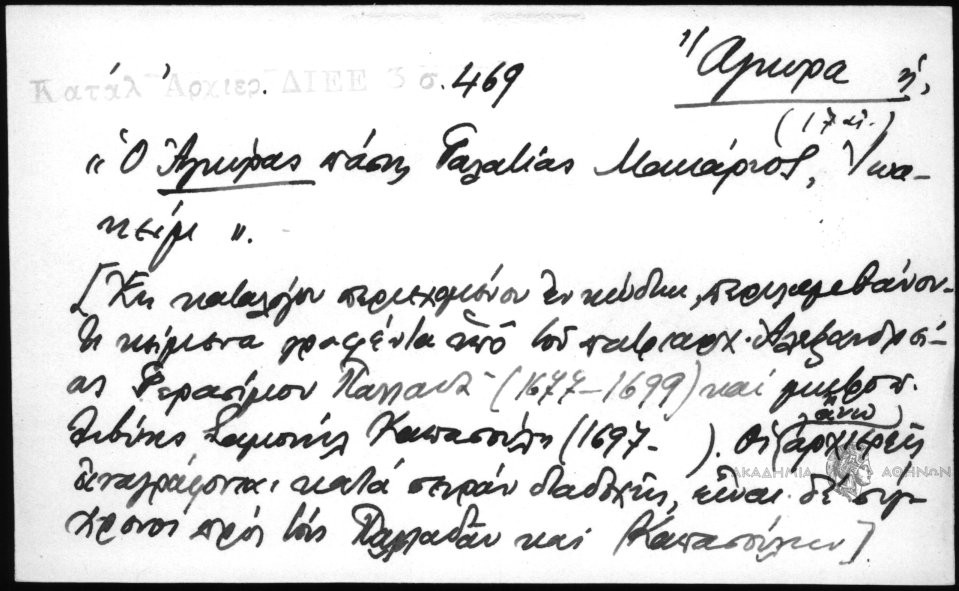 Κατάλ. Ἀρχιερ. ΔΙΕΕ 3 σ. 469
Ἄγκυρα ἡ,
(17 αἰ.)
"Ὁ Ἀγκύρας πάσης Γαλατίας Μακάριος, Ἰωα-
κείμ".
[Ἐκ καταλόγου περιεχομένου ἐν κώδικι, περιλαμβάνον-
τι κείμενα γραφέντα ὑπὸ τοῦ πατριαρχ. Ἀλεξανδρεί-
ας Γερασίμου Παλλαδᾶ (1677-1699) καὶ μητροπ.
Λιβύης Σαμουὴλ Καπασούλη (1697- ). Οἱ ἄνω ἀρχιερεῖς
ἀναγράφονται κατὰ σειρὰν διαδοχῆς, εἶναι δὲ σύγ-
χρονοι πρὸς τοὺς Παλλαδᾶν καὶ Καπασούλην].
ΑΚΑΔΗΜΙΑ ΑΘΗΝΩΝ